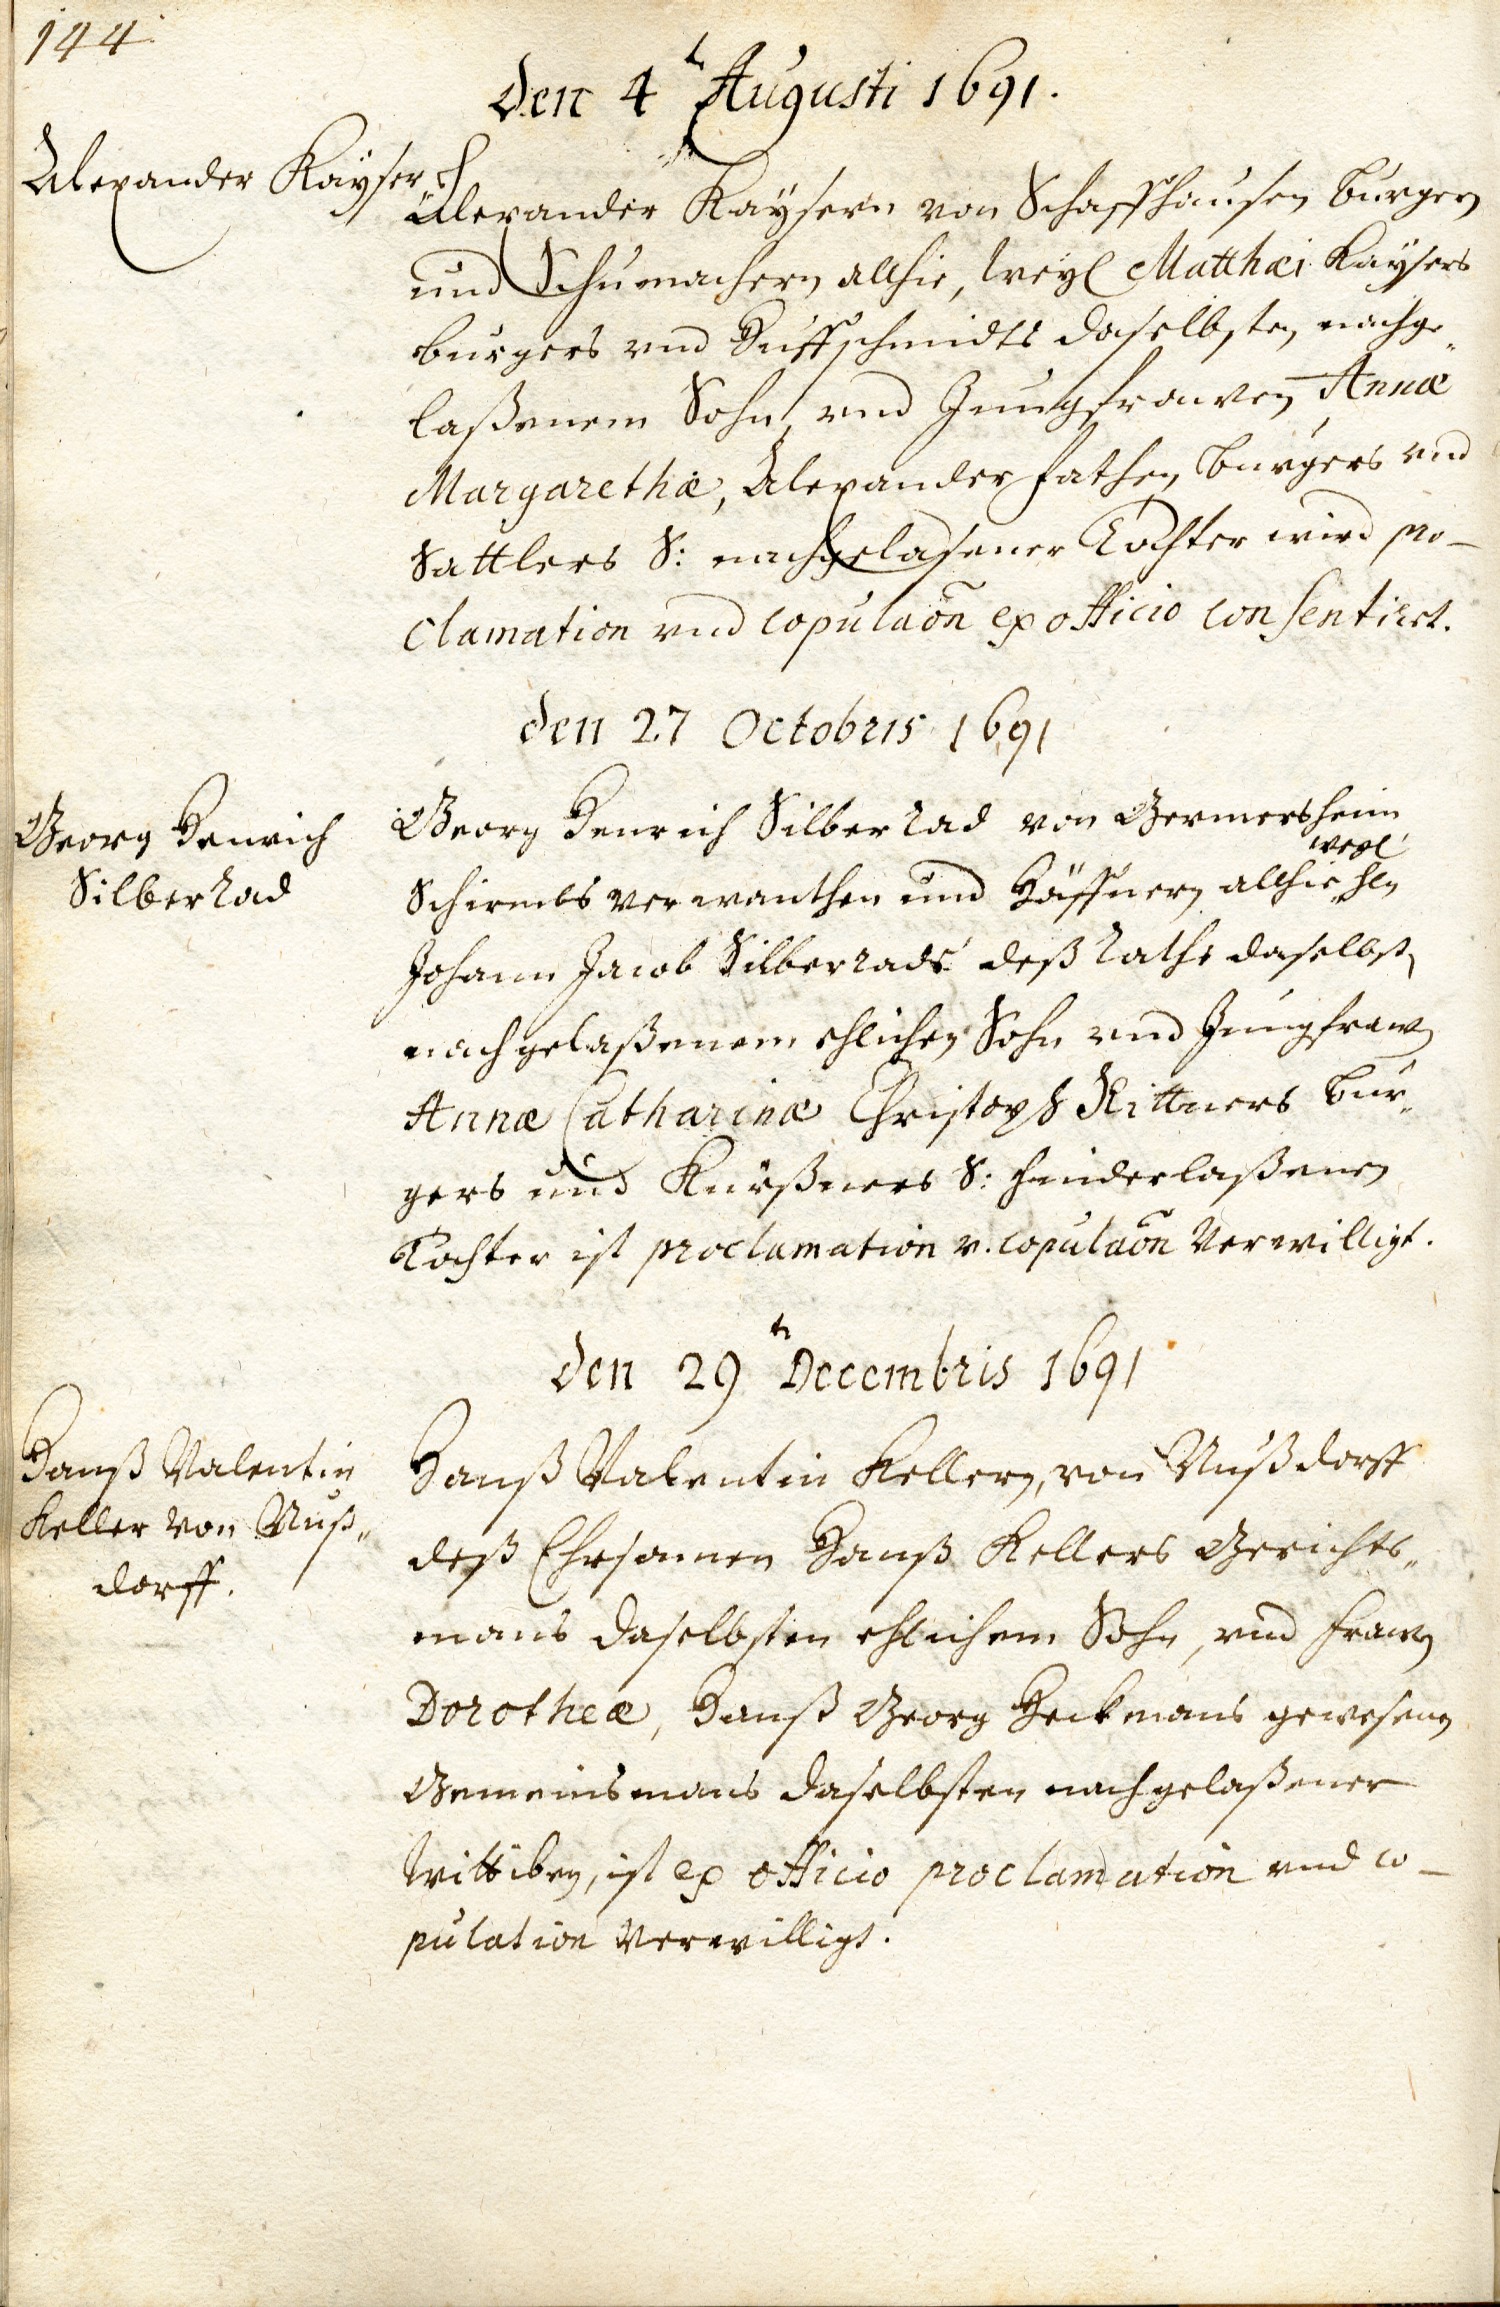 144.
den 4t Augusti 1691.
Alexander Kayser
Alexander Kaysern von Schaffhausen burgern
und Schumachern allhie, weyl Matthæi Kaysers
burgers vnd Huffschmidts daselbsten, nachge„
laßenem Sohn, vnd Jungfrawen Annæ
Margarethæ, Alexander fathen, burgers vnd
Sattlers S: nachgelasener Tochter wird pro-
clamation vnd copulaõn ex officio consentirt.
den 27 Octobris 1691
Georg Henrich
Silberrad
Georg Henrich Silberrad von Germersheim
Schirmbsverwanthen und Häffnern allhie, weyl hℓn
Johann Jacob Silberrads deß raths daselbst,
nachgelaßenem ehlichen Sohn vnd Jungfraw
Annæ Catharinæ Christoph Rittners bur„
gers und Kürßners S: hinderlaßenen
Tochter ist proclamation v. copulaõn verwilligt.
den 29t Decembris 1691
Hanß Valentin
Keller von Nuß„
dorff.
Hanß Valentin Kellern, von Nußdorff
deß Ehrsamen Hanß Kellers Gerichts„
mans daselbsten ehlichem Sohn, vnd frawen
Dorotheæ, Hanß Georg Heckmans gewesenen
Gemeinsmans daselbsten nachgelaßener
Wittiben, ist ex officio proclamation vnd co-
pulation verwilligt.